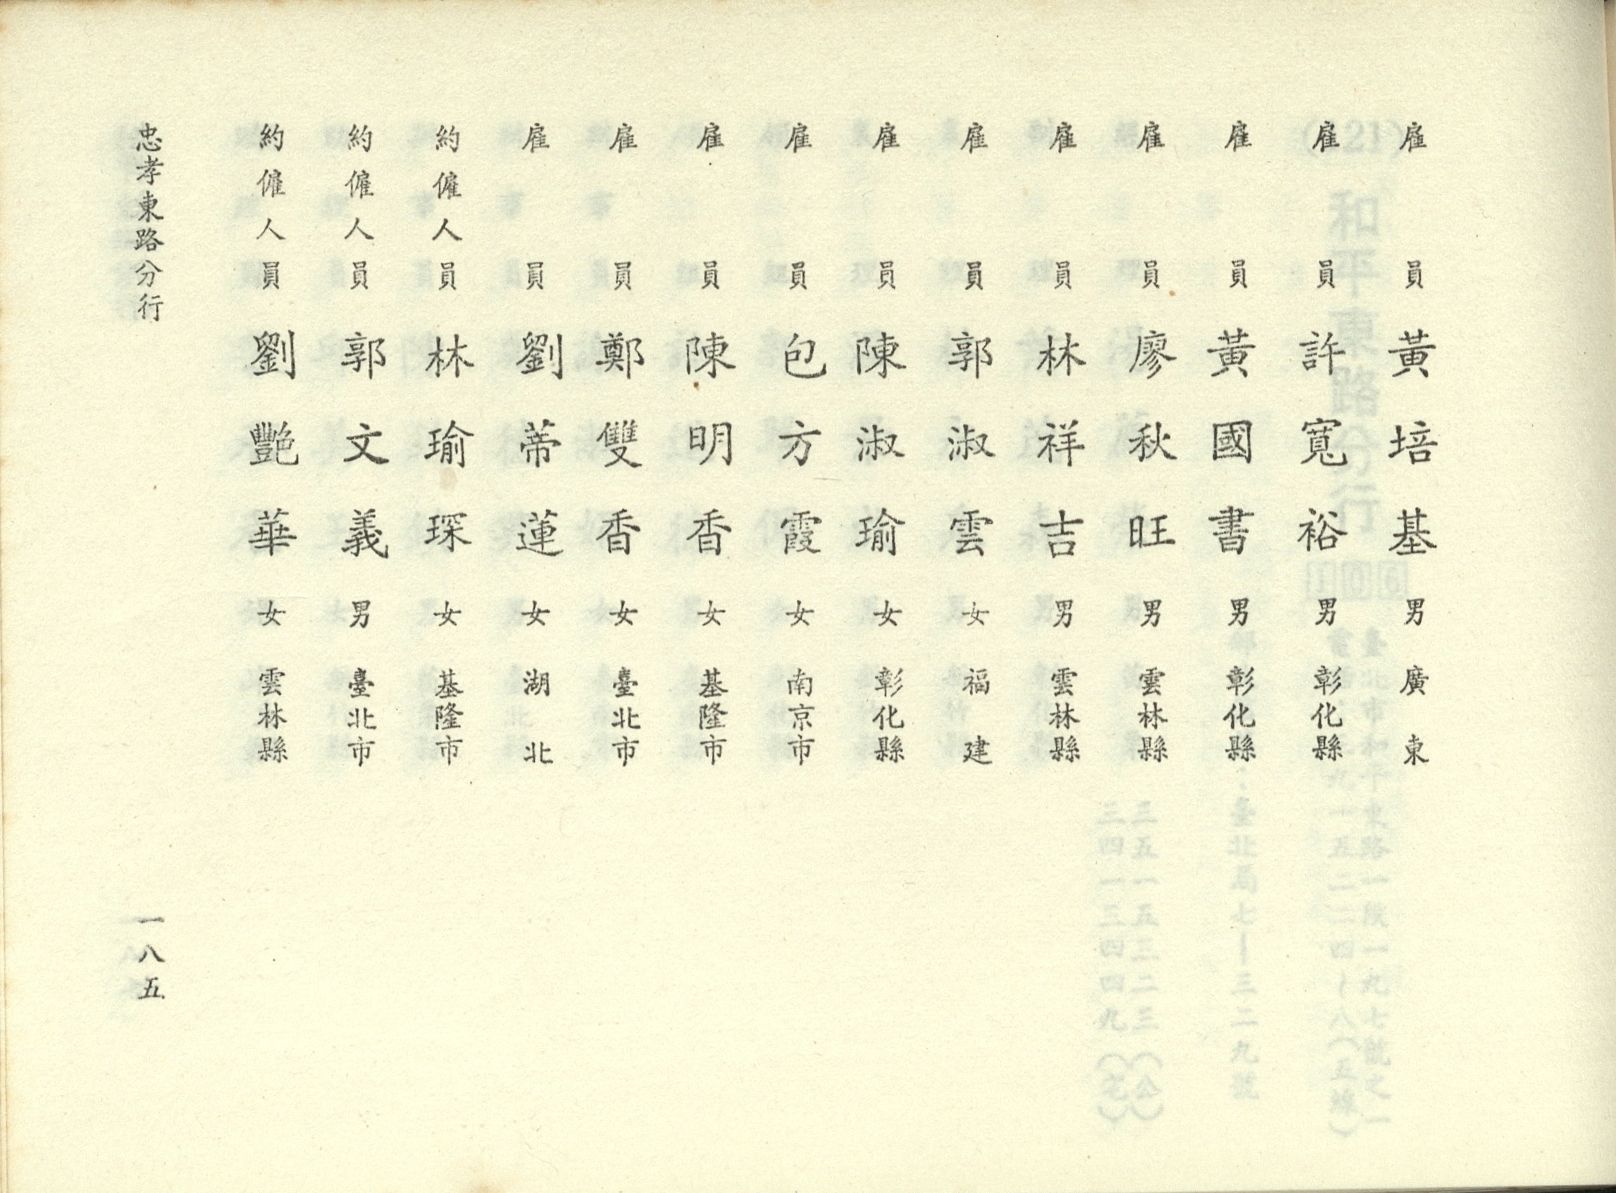 雇員 黃培基 男 廣東
雇員 許寬裕 男 彰化縣
雇員 黃國書 男 彰化縣
雇員 廖秋旺 男 雲林縣
雇員 林祥吉 男 雲林縣
雇員 郭淑雲 女 福建
雇員 陳淑瑜 女 彰化縣
雇員 包方霞 女 南京市
雇員 陳明香 女 基隆市
雇員 鄭雙香 女 臺北市
雇員 劉蒂蓮 女 湖北
約僱人員 林瑜琛 女 基隆市
約僱人員 郭文義 男 臺北市
約僱人員 劉艷華 女 雲林縣
忠孝東路分行 一八五